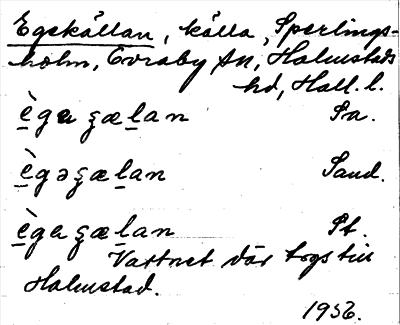 Egekällan, källa, Sperlings-
holm, Övraby sn, Halmstads
hd, Hall. l.
è̱ga ʂæḻan Pa.
è̱gəʂæḻan Sand.
è̱ga ʂæḻan St.
Vattnet där togs till
Halmstad.
1936.